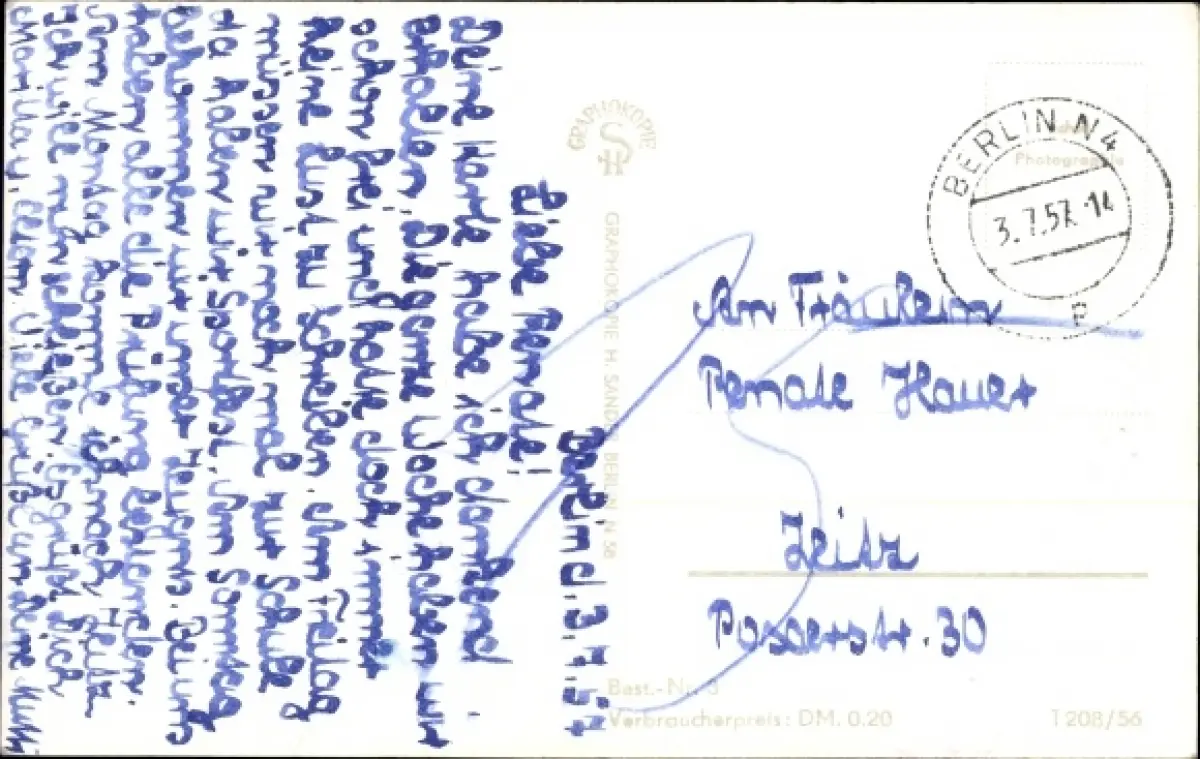 Berlin d. 3.7.57
Liebe Renate!
Deine Karte habe ich dankend
erhalten. Die ganze Woche haben wir
schon frei und habe doch immer
keine Lust zu schreiben. Am Freitag
müssen wir noch mal zur Schule
da haben wir Sportfest. Am Sonnabend
bekommen wir unser Zeugnis. Bei uns
haben alle die Prüfung bestanden.
Am Montag komme ich nach Zeitz.
Ich will nun schließen. Es grüßt Dich
viele Grüße an deine Mutti
GRAPHOKOPIE
SH
GRAPHOKOPIE H. SANDER BERLIN N 58
Photographie
BERLIN N4
3.7.57.14
P
An Fräulein
Renate Hauer
Zeitz
Posaerstr. 30
Best.-Nr. 3
Verbraucherpreis: DM. 0,25